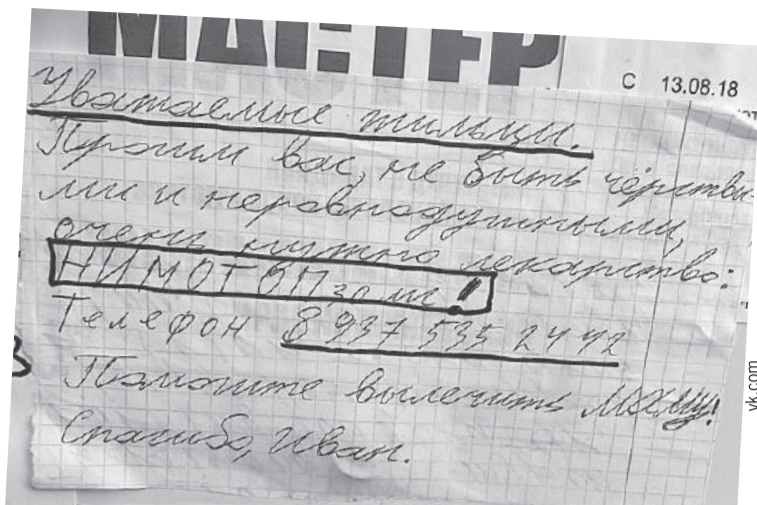 МАСТЕР
С 13.08.18
Уважаемые жильцы.
Просим вас, не быть чёрствы-
ми и неравнодушными,
очень нужно лекарство:
НИМОТОП 30 мг!
Телефон 8 937 535 2442
Помогите вылечить маму!
Спасибо, Иван.
vk.com